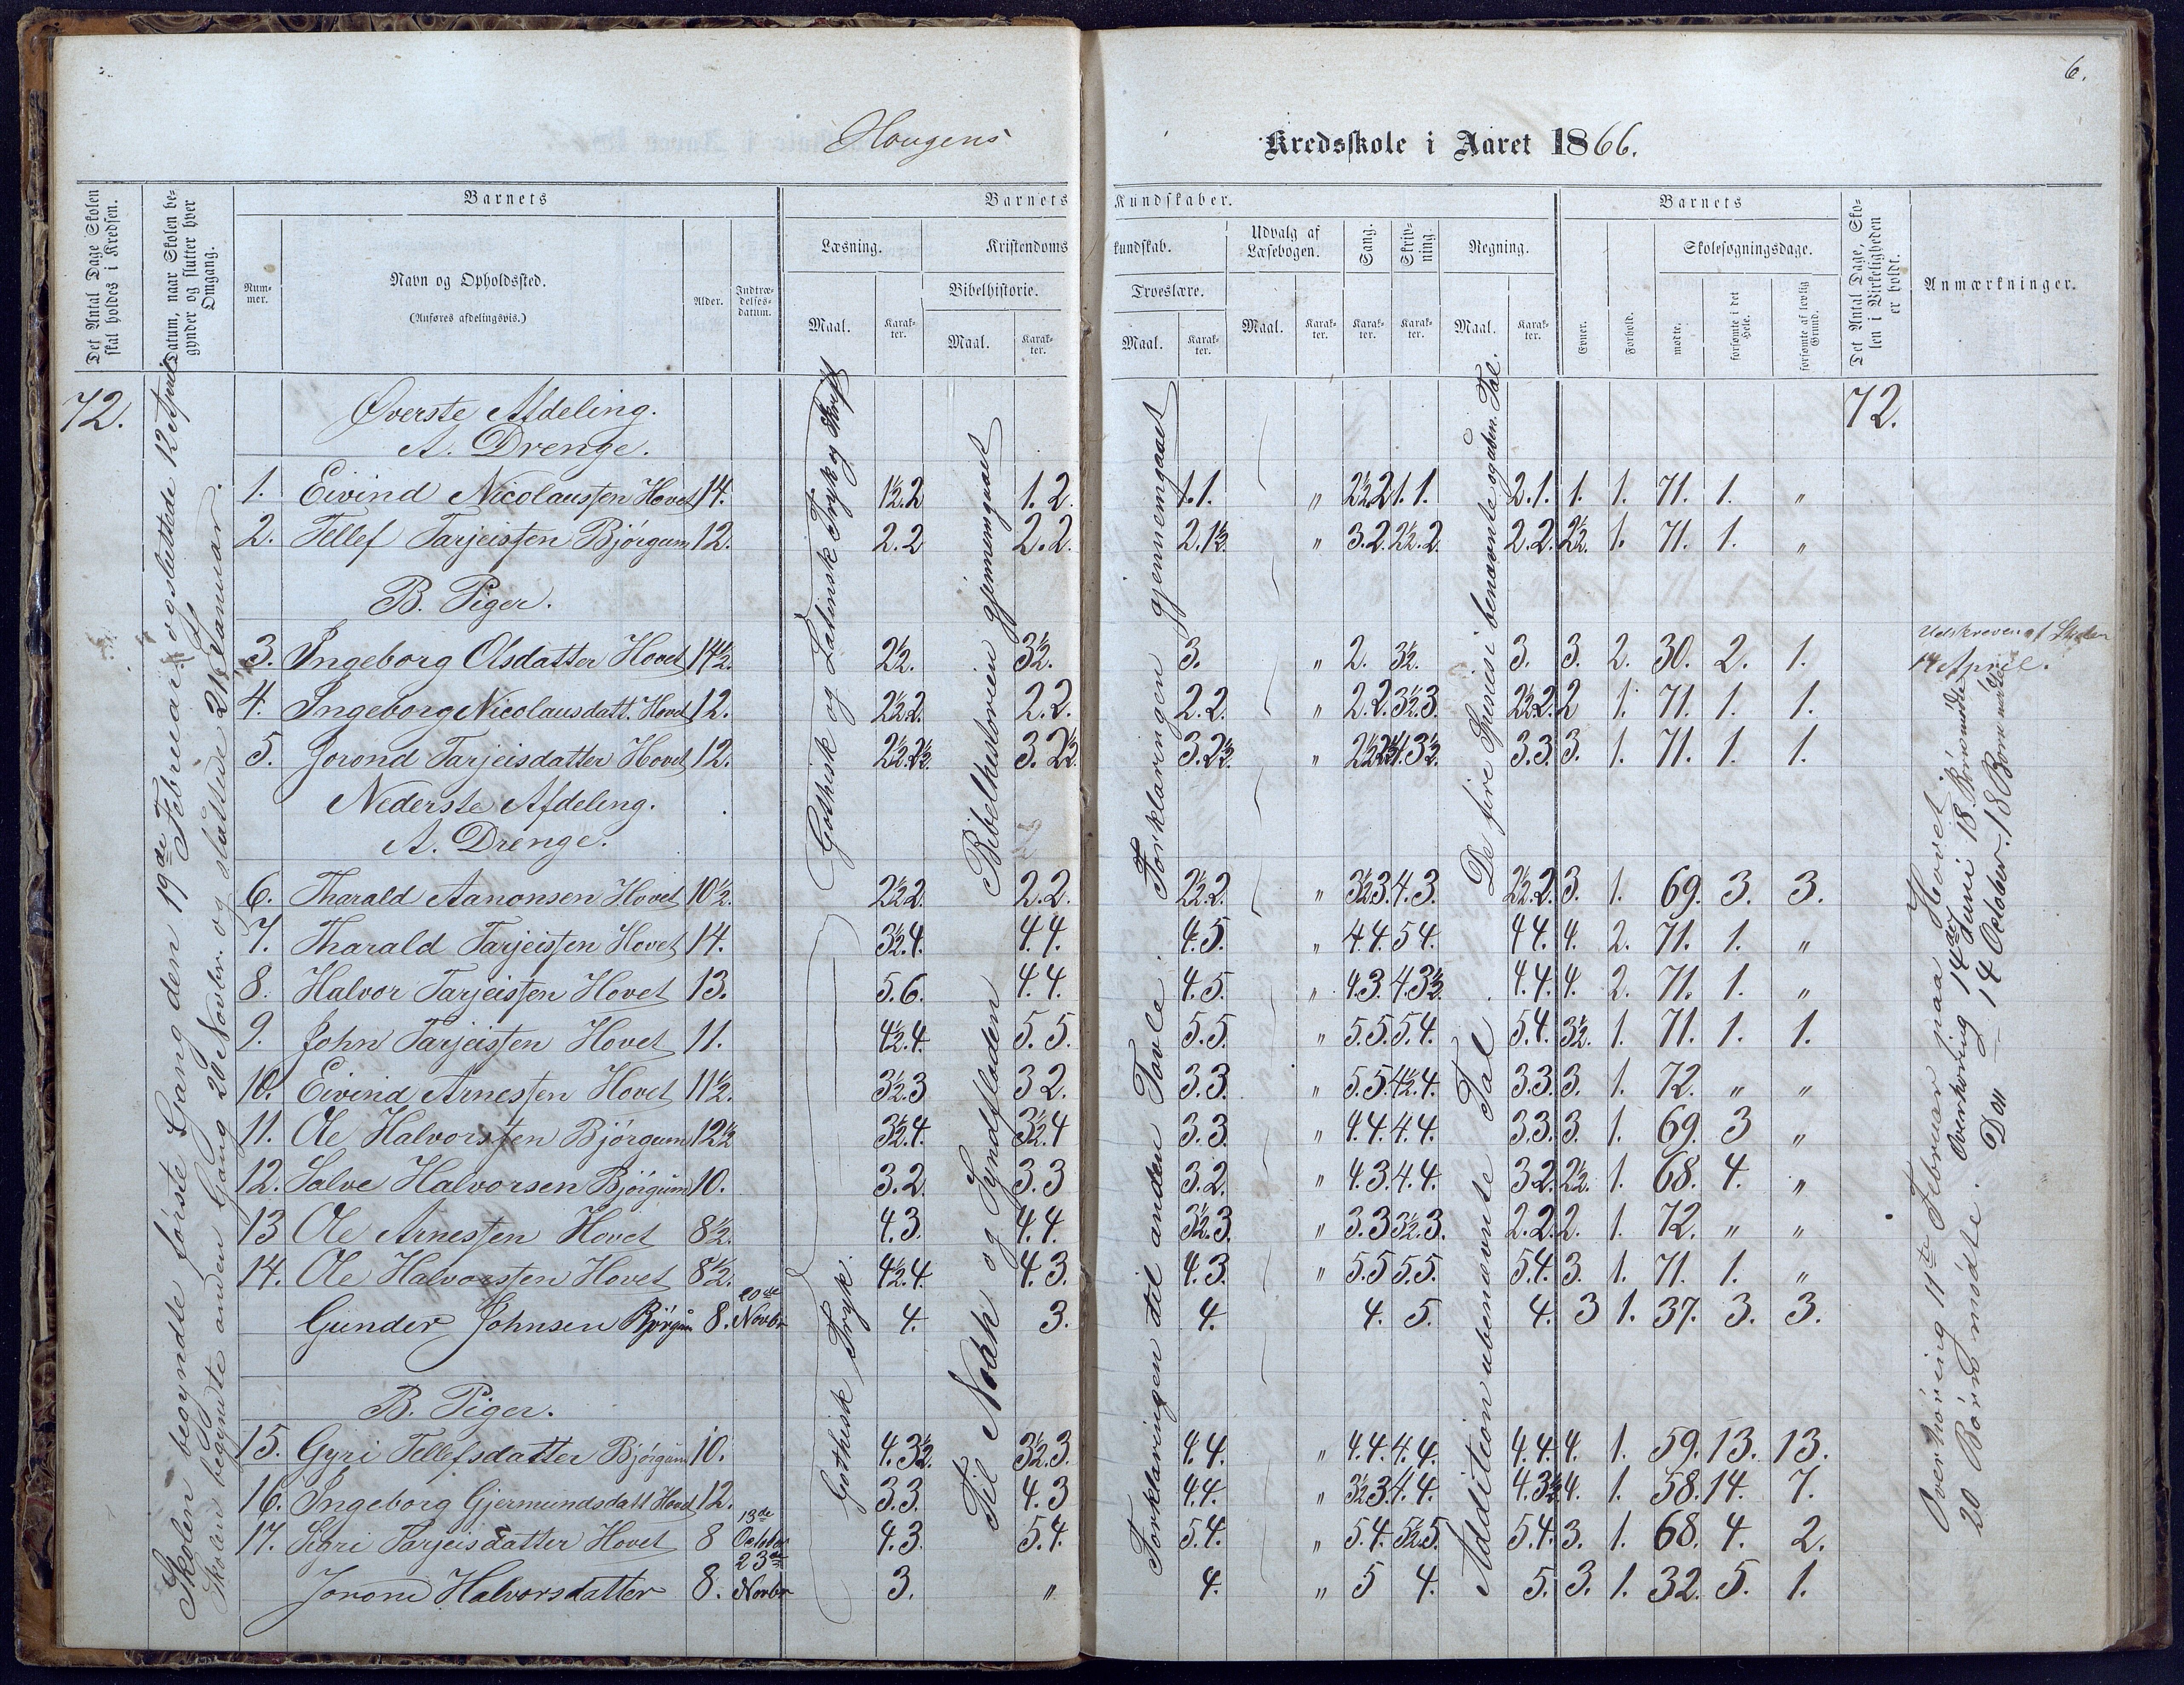 6.
Hougens
Kredsskole i Aaret 1866.
Det Antal Dage Skolen skal holdes i Kredsen.
Datum, naar Skolen begynder og slutter hver Omgang.
Barnets
Barnets
Kundskaber.
Barnets
Det Antal Dage, Skolen i Virkeligheden er holdt.
Anmærkninger.
Nummer.
Navn og Opholdssted.
(Anføres afdelingsvis.)
Alder.
Indtrædelsesdatum.
Læsning.
Kristendoms
kundskab.
Udvalg af Læsebogen.
Sang.
Skrivning.
Regning.
Skolesøgningsdage.
Bibelhistorie.
Troeslære.
Maal. Karakter. Maal. Karakter.
Maal. Karakter. Maal. Karakter. Karakter. Karakter. Maal. Karakter. Evner. Forhold. mødte. forsømte i det Hele. forsømte af lovlig Grund.
72.
72.
Skolen begyndte første Gang den 19de Februar og sluttede 12 April
Skolen begynte anden Gang 20 Novbr. og sluttede 21 Januar.
Gothisk og Latinsk Tryk og Skrift
Gothisk Tryk.
Bibelhistorien gjennemgaaet
Til Noah og Syndfloden
Forklaringen gjennemgaaet
Forklaringen til anden Tavle.
De fire Species i benævnte og uben. Tal.
Addition ubenævnte Tal
Øverste Afdeling.
A. Drenge.
1. Eivind Nicolaussen Hovet 14. 1½.2 1.2. 1.1. " 2½.2 1.1. 2.1. 1. 1. 71. 1. "
2. Tellef Tarjeissen Bjørgum 12. 2.2 2.2. 2.1½. " 3.2. 2½.2. 2.2. 2½. 1. 71. 1. "
B. Piger.
3. Ingeborg Olsdatter Hovet 14½. 2½. 3½. 3. " 2. 3½. 3. 3. 2. 30. 2. 1. Udskreven af Skolen 14 April.
4. Ingeborg Nicolausdatt. Hovet 12. 2½.2. 2.2. 2.2. " 2.2. 3½.3. 2½.2. 2 1. 71. 1. 1.
5. Jorond Tarjeisdatter Hovet 12. 2½.2½. 3.2½ 3.2½. " 2½.2½ 4.3½. 3.3. 3. 1. 71. 1. 1.
Nederste Afdeling.
A. Drenge.
6. Tharald Aanonsen Hovet 10½. 2½.2. 2.2. 2½.2. " 3½.3. 4.3. 2½.2. 3. 1. 69. 3. 3.
7. Tharald Tarjeissen Hovet 14. 3½.4. 4.4. 4.5. " 4.4. 5 4. 4 4. 4. 2. 71. 1. "
8. Halvor Tarjeissen Hovet 13. 5.6. 4.4. 4.5. " 4.3. 4.3½. 4.4. 4. 2. 71. 1. "
9. John Tarjeissen Hovet 11. 4½.4. 5.5. 5.5. " 5.5. 5 4. 5.4. 3½. 1. 71. 1. 1.
10. Eivind Arnessen Hovet 11½. 3½.3 3 2. 3.3. " 5.5. 4½.4. 3.3. 3. 1. 72. " "
11. Ole Halvorssen Bjørgum 12½ 3½.4. 3½.4 3.3. " 4.4. 4.4. 3.3. 3. 1. 69. 3 "
12. Salve Halvorsen Bjørgum 10. 3.2. 3.3 3.2. " 4.3. 4.4. 3 2. 2½. 1. 68. 4. "
13 Ole Arnessen Hovet 8½. 4.3. 4.4. 3½.3. " 3.3 3½.3. 2.2. 2. 1. 72. " "
14. Ole Halvorssen Hovet 8½. 4½.4. 4.3. 4.3. " 5.5 5.5. 5 4. 3. 1. 71. 1. "
Gunder Johnsen Bjørgum 8. 20de Novbr 4. 3. 4. 4. 5. 4. 3 1. 37. 3. 3.
B. Piger.
15. Gyri Tellefsdatter Bjørgum 10. 4.3½. 3½.3. 4.4. " 4.4. 4.4. 4.4. 4. 1. 59. 13. 13.
16. Ingeborg Gjermundsdatt Hovet 12. 3.3. 4.3 4.4. " 3½.3. 4.4. 4.3½ 4. 1. 58. 14. 7.
17. Sigri Tarjeisdatter Hovet 8 13de October 4.3. 5.4. 5.4. " 5.4. 5½.5. 5.4. 3. 1. 68. 4. 2.
Jorond Halvorsdatter 8. 23de Novbr 3. " 4. " 5 4. 5. 3. 1. 32. 5. 1.
Overhøring 11te Februar paa Hovet
20 Børn mødte. Overhøring 14de Juni 18 Børn mødte
Do — 14 October. 18 Børn mødte